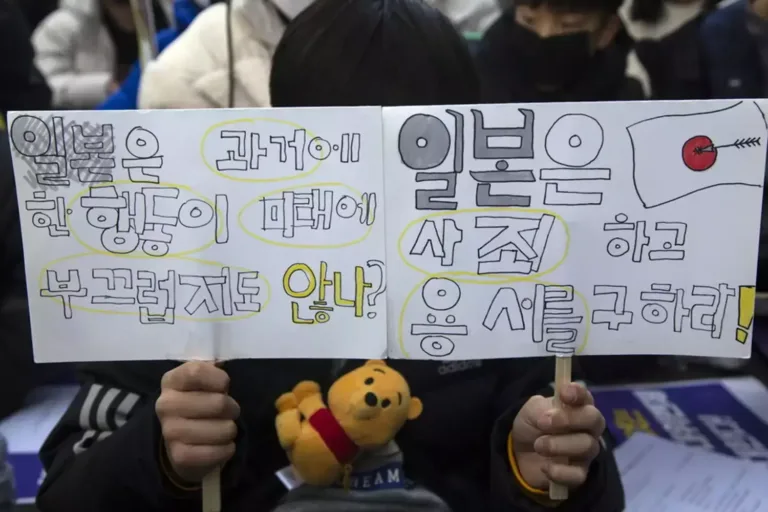 일본은 과거에
한 행동이 미래에
부끄럽지도 않나?
일본은
사죄 하고
용서를 구하라!
adidas